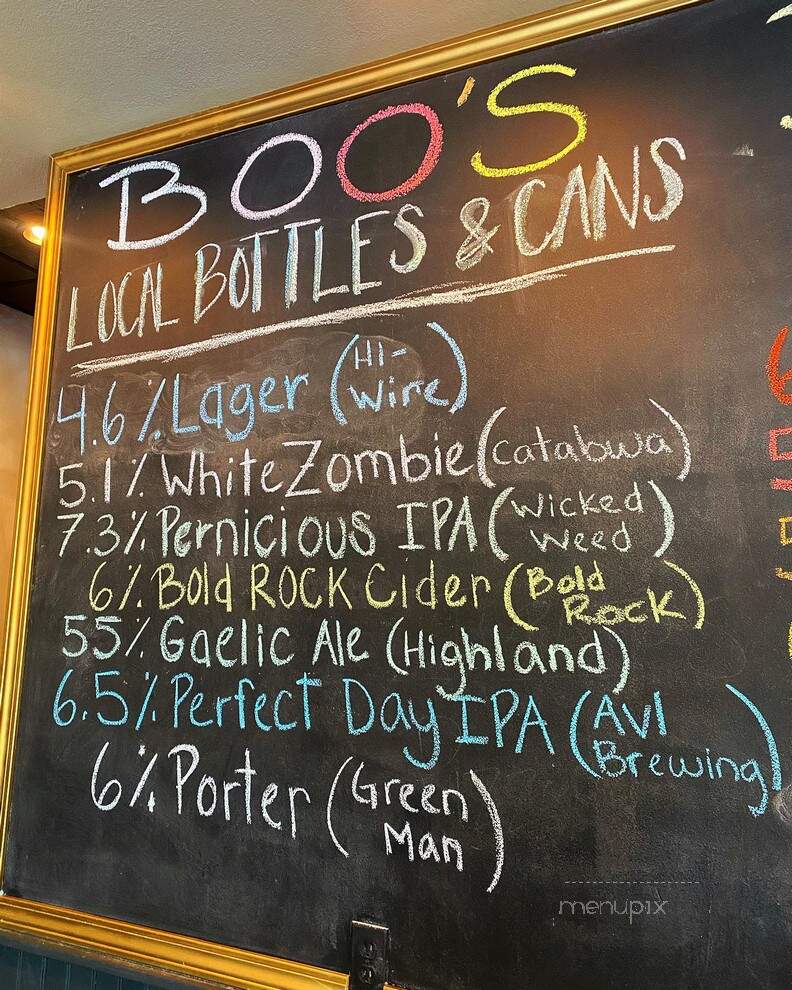 BOO'S
LOCAL BOTTLES & CANS
4.6% Lager (HI-
Wire)
5.1% White Zombie (Catabwa)
7.3% Pernicious IPA (Wicked
Weed)
6% Bold ROCK Cider (Bold
ROCK)
55% Gaelic Ale (Highland)
6.5% Perfect Day IPA (AVl
Brewing)
6% Porter (Green
Man)
menupix